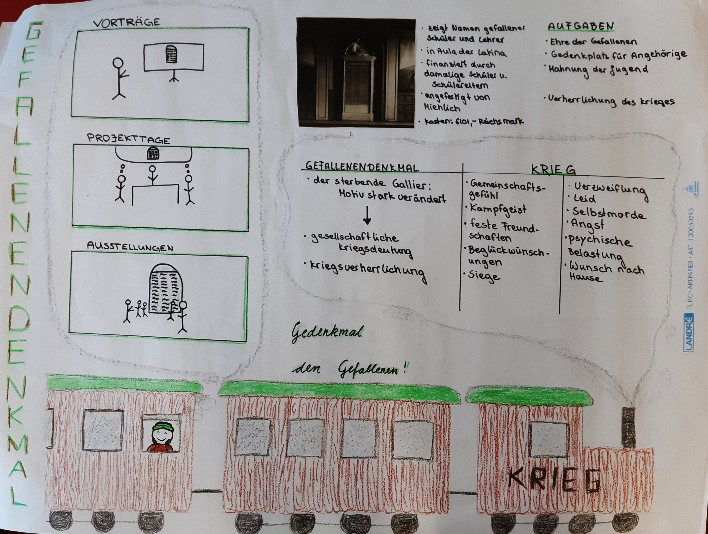 GEFALLENENDENKMAL
VORTRÄGE
PROJEKTTAGE
AUSSTELLUNGEN
· zeigt Namen gefallener
Schüler und Lehrer
· in Aula der Latina
· finanziert durch
damalige Schüler u.
Schülereltern
· angefertigt von
Hiehlich
· Kosten: 6101,- Reichsmark
AUFGABEN
· Ehre der Gefallenen
· Gedenkplatz für Angehörige
· Mahnung der Jugend
· Verherrlichung des Krieges
GEFALLENENDENKMAL
· der sterbende Gallier:
Motiv stark verändert
· gesellschaftliche
Kriegsdeutung
· Kriegsverherrlichung
KRIEG
· Gemeinschafts-
gefühl
· Kampfgeist
· feste Freund-
schaften
· Beglückwünsch-
ungen
· Siege
· Verzweiflung
· Leid
· Selbstmorde
· Angst
· psychische
Belastung
· Wunsch nach
Hause
Gedenkmal
den Gefallenen!
KRIEG
LANDRÉ